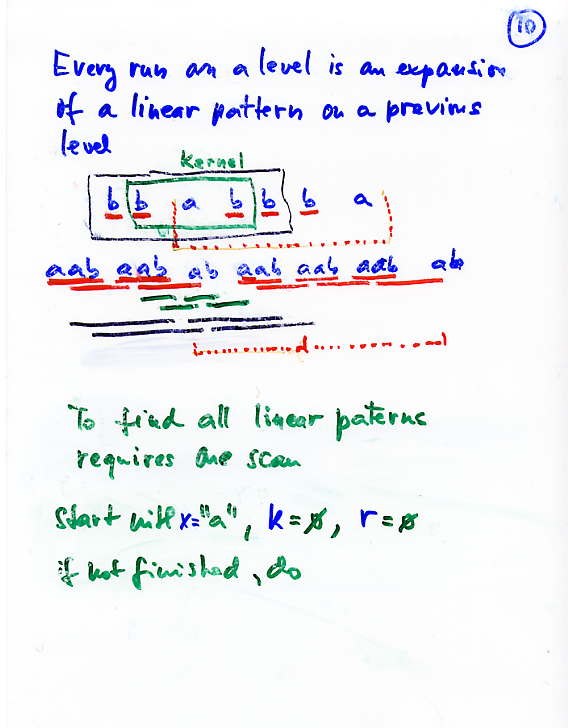 10
Every run on a level is an expansion
of a linear pattern on a previous
level
Kernel
b b a b b b a
aab aab ab aab aab aab ab
To find all linear paterns
requires one scan
start with x="a", k=∅, r=∅
if not finished, do